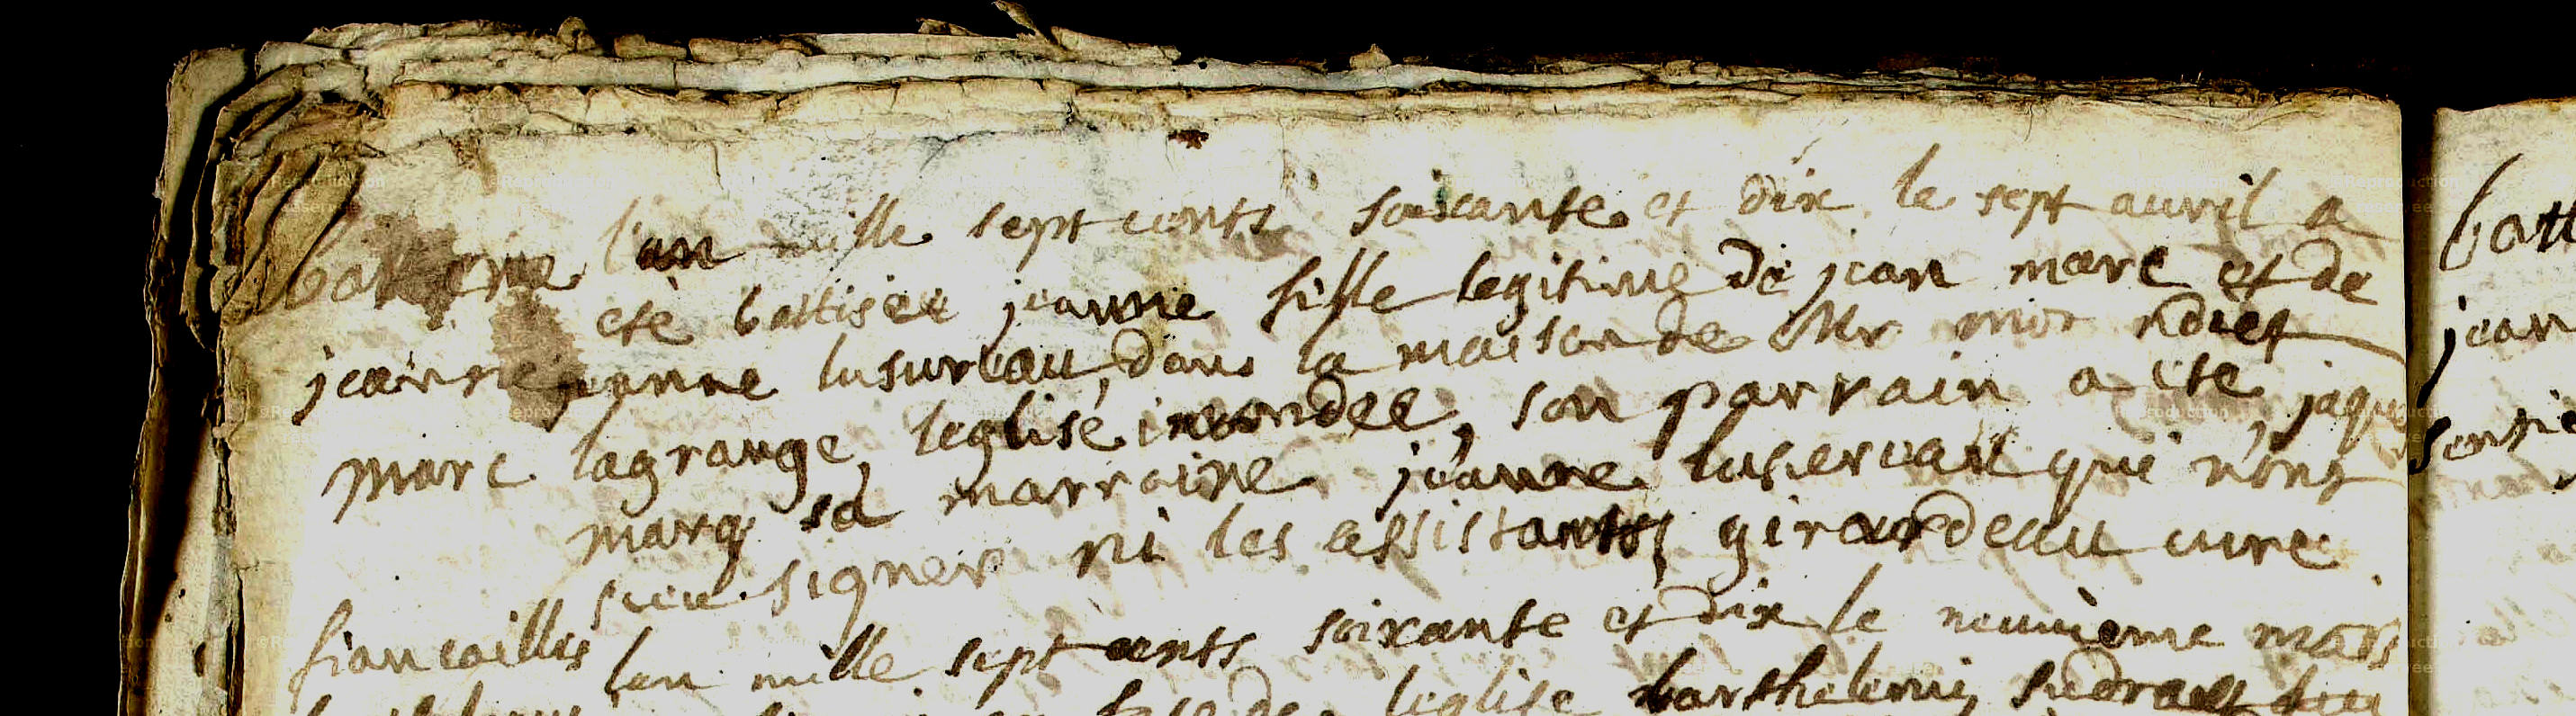 batteme l'an mille sept cents soixante et dix le sept auvril a
eté battisée jeanne fille legitime de jean marc et de
jeanne jeanne lusureau, dans la maison de Mr
marc lagrange, leglise inondée, son parrain a ete, jaque
marq sa marraine jeanne lusereau qui n'ont
sceu signer ni les assistants girardeau curé
fiancailles lan mille sept cents soixante et dix le neuvieme mars
leglise barthelemi
batt
jean